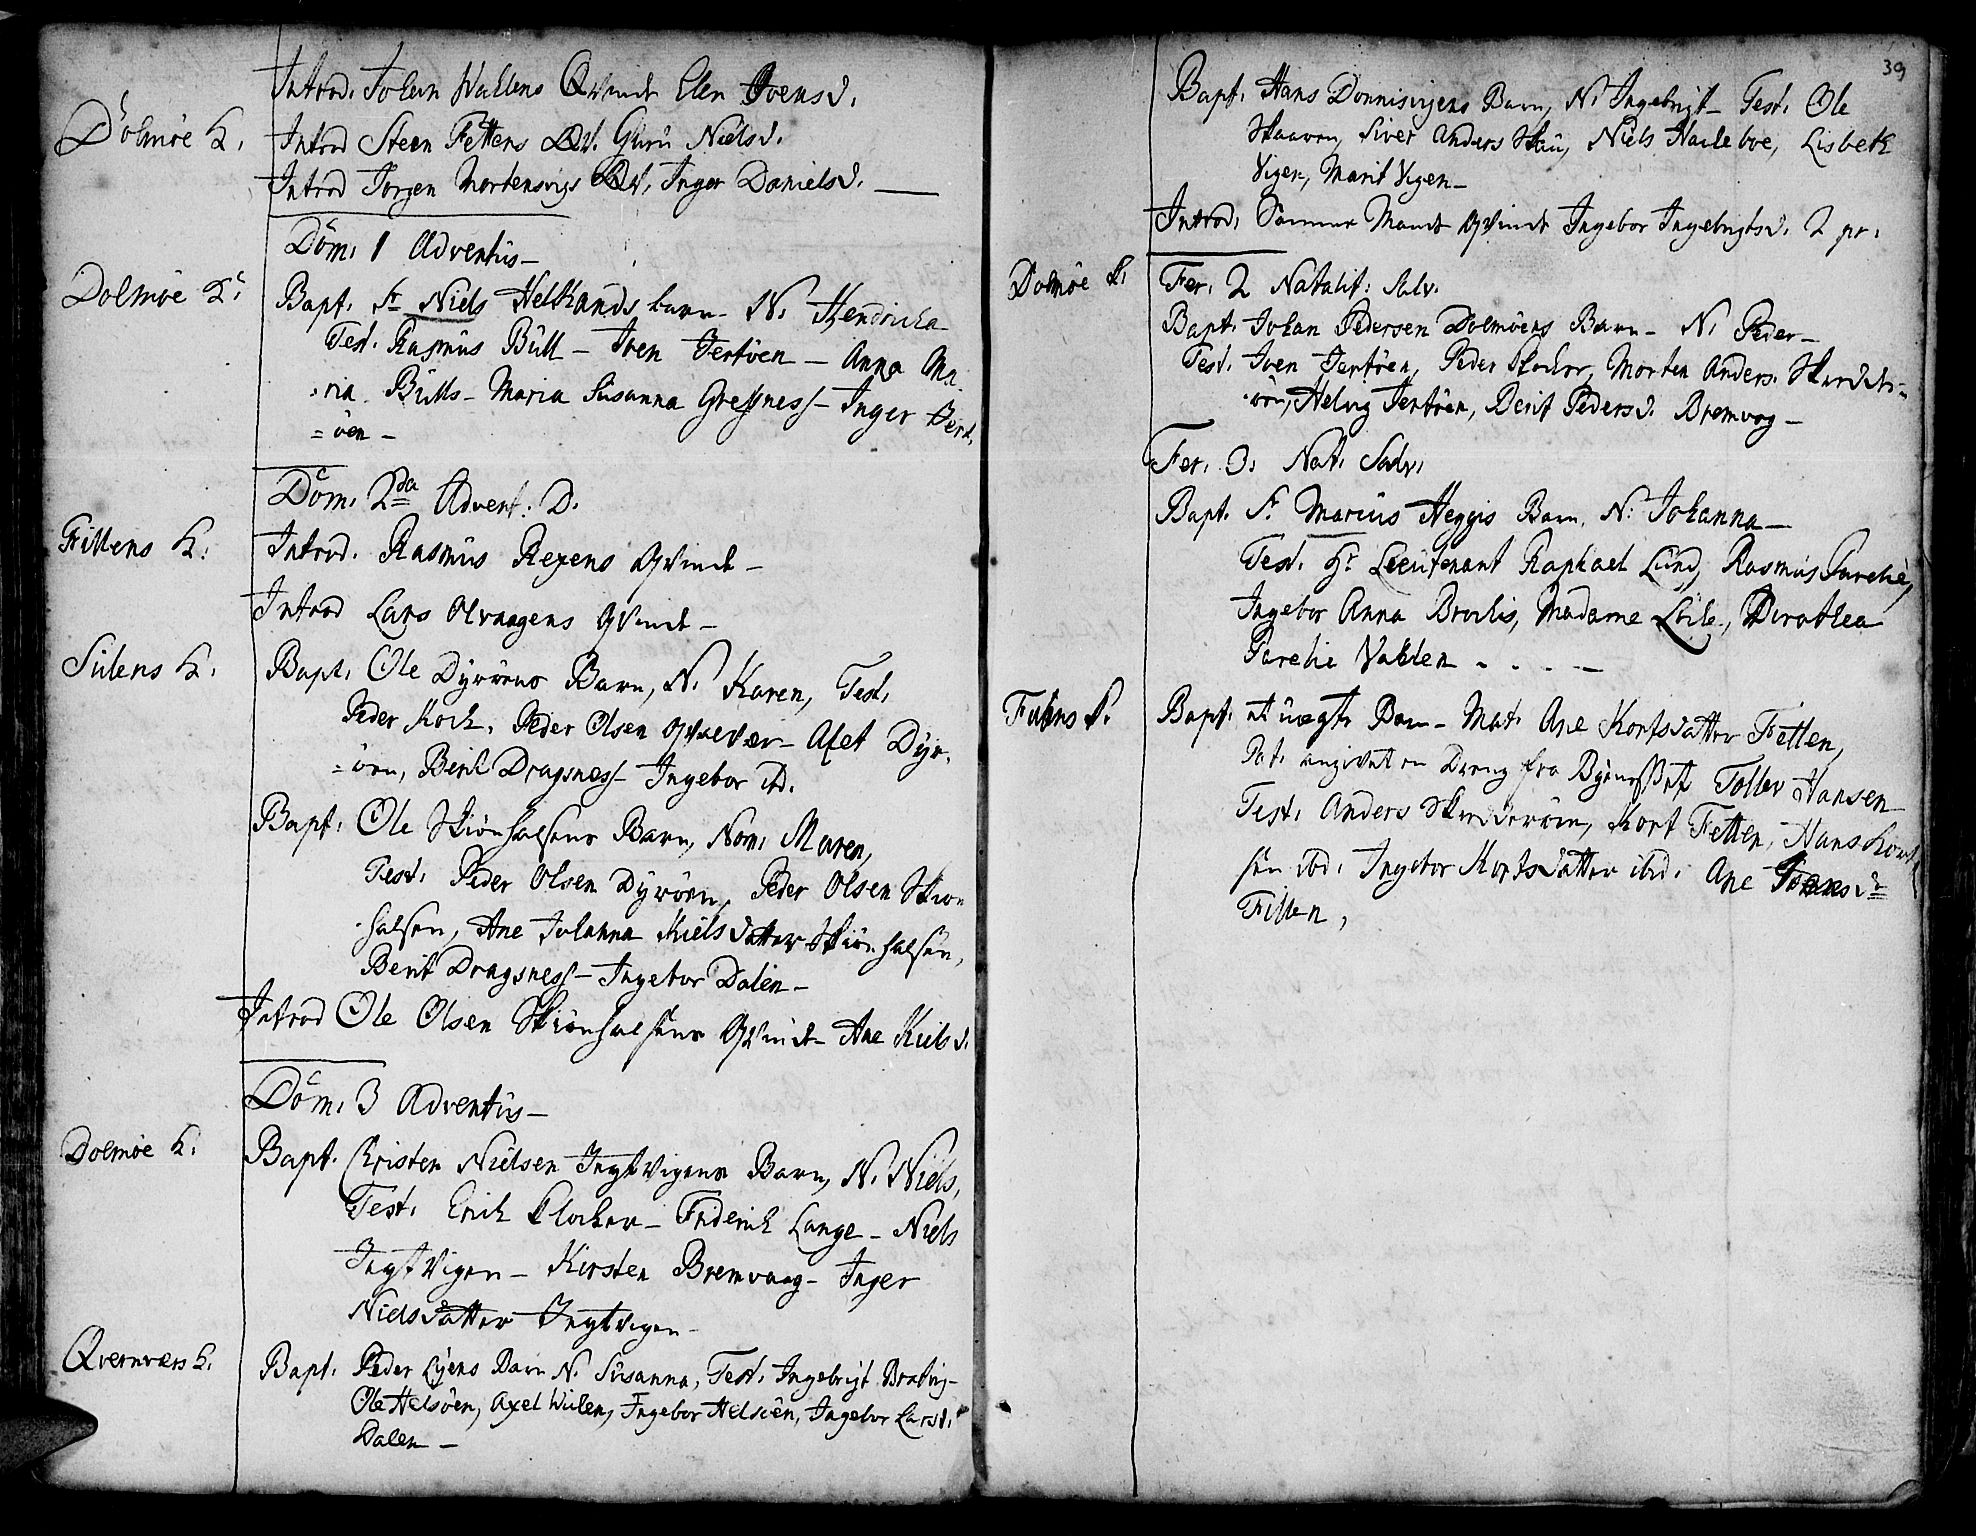 Introd. Johan Wallens Qvinde Elen Ivensd.
Dolmøe K. Introd Steen Fettens Qv. Guru Nielsd.
Introd Jørgen Mortensvigs Qv. Inger Danielsd. —
Dom. 1 Adventus —
Dolmöe K. Bapt. Sr Niels Helkands barn — N. Hendricka
Test. Rasmus Büll — Iven Jertöen — Anna Ma
:ria Bülls — Maria Susanna Gressness — Inger Jert
= öen —
Dom. 2da Advent. D.
Fillens K. Introd. Rasmus Rexens Qvinde —
Introd Lars Olvaagens Qvinde —
Sulens K. Bapt. Ole Dyrøens Barn, N. Karen, Test.
Peder Koch. Peder Olsen Qvalvær — Afet Dyr-
= öen, Berit Dragsness — Ingebor ibd.
Bapt. Ole Skiönhalsens Barn, Nom. Maren,
Test. Peder Olsen Dyröen, Peder Olsen Skiön
halsen, Ane Johanna Kielsdatter Skiönhalsen,
Berit Dragsness — Ingebor Dalen —
Introd Ole Olsen Skiönhalsens Qvinde — Ane Kielsd.
Dom. 3 Adventus —
Dolmöe K. Bapt. Christen Nielsen Jngtvigens Barn, N. Niels,
Test. Erich Klocker — Friderich Lange — Niels
Jngtvigen — Kirsten Bremvaag — Inger
Nielsdatter Jngtvigen —
Qvernværs K. Bapt. Peder Lyens Barn N. Susanna, Test. Ingebrigt Bratvig —
Ole Helsöen, Axel Wiilen, Ingebor Helsöen, Ingebor Larsd.
Dalen —
39
Bapt. Hans Donnisvigens Barn, N. Ingebrigt — Test. Ole
Skaaren, Siver Anders Skiu, Niels Haileboe, Lisbeth
Vigen, Marit Vigen —
Introd. Samme Mands Qvinde Ingebor Ingebrigtsd. 2 pr.
Dolmöe K. Fer. 2 Natalit: Salv.
Bapt. Johan Pedersen Dolmöens Barn — N. Peder —
Test. Iven Jertöen, Peder Skolor, Morten Anders. Skardvær-
öen, Helvig Jertöen, Berit Pedersd. Bremvog —
Fer. 3. Nat. Salv.
Bapt. Sr Marius Heggis Barn. N. Johanna —
Test. Hr Lieutenant Raphael Lund, Rasmus Parelie,
Ingebor Anna Brochs, Madame Löile, Dorothea
Parelie Vahlen . . . —
Bapt. et uægte Barn — Mat. Ane Kortsdatter Fetten,
Pat. angivet en Dreng fra Byenæsset Toller Hansen
Test. Anders Skarsvaröen, Kort Fetten, Hans Kort
sen ibd. Ingebor Kortsdatter ibd. Ane
Fillen,